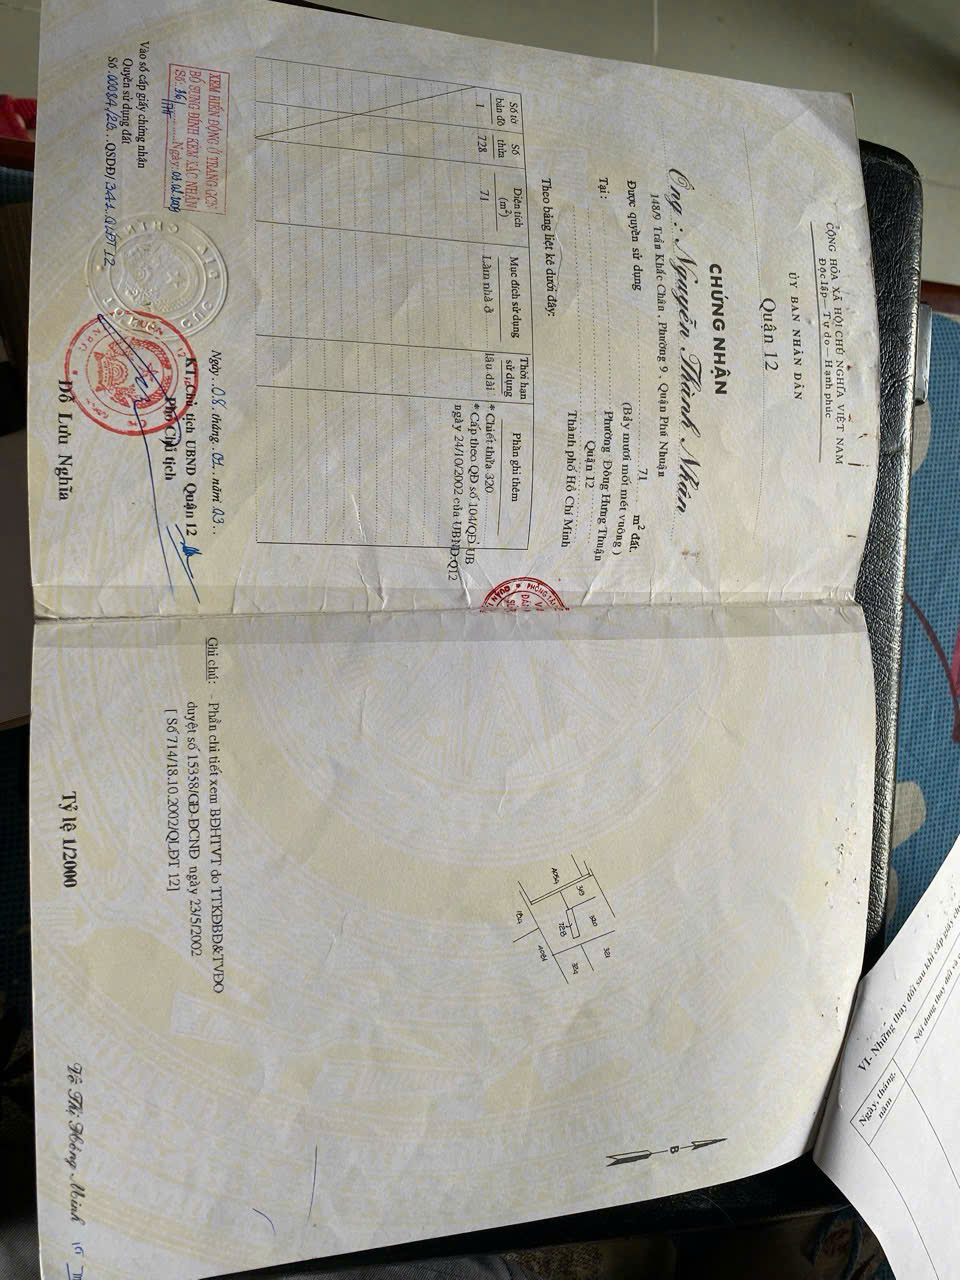 CỘNG HÒA XÃ HỘI CHỦ NGHĨA VIỆT NAM
Độc lập — Tự do — Hạnh phúc
ỦY BAN NHÂN DÂN
Quận 12
CHỨNG NHẬN
Ông : Nguyễn Thành Nhân
148/9 Trần Khắc Chân , Phường 9 , Quận Phú Nhuận
Được quyền sử dụng 71 m² đất.
(Bảy mươi mốt mét vuông )
Tại : Phường Đông Hưng Thuận
Quận 12
Thành phố Hồ Chí Minh
Theo bảng liệt kê dưới đây:
Số tờ bản đồ Số thửa Diện tích (m²) Mục đích sử dụng Thời hạn sử dụng Phần ghi thêm
1 728 71 Làm nhà ở lâu dài * Chiết thửa 320
* Cấp theo QĐ số 104/QĐ-UB
ngày 24/10/2002 của UBND.Q12
XEM BIẾN ĐỘNG Ở TRANG GCN
BỔ SUNG ĐÍNH KÈM XÁC NHẬN
Vào sổ cấp giấy chứng nhận
Quyền sử dụng đất
Ngày 08 tháng 01 năm 03
KT. Chủ tịch UBND Quận 12
Phó Chủ tịch
Đỗ Lưu Nghĩa
319
320
321
728
324
B
Ghi chú: - Phần chi tiết xem BĐHTVT do TTKĐBĐ&TVĐO
duyệt số 15358/GĐ-ĐCNĐ ngày 23/5/2002
[ Số 714/18.10.2002/QLĐT 12]
Tỷ lệ 1/2000
Võ Thị Hồng Minh
VI- Những thay đổi sau khi cấp giấy
Ngày, tháng, năm
Nội dung thay đổi và